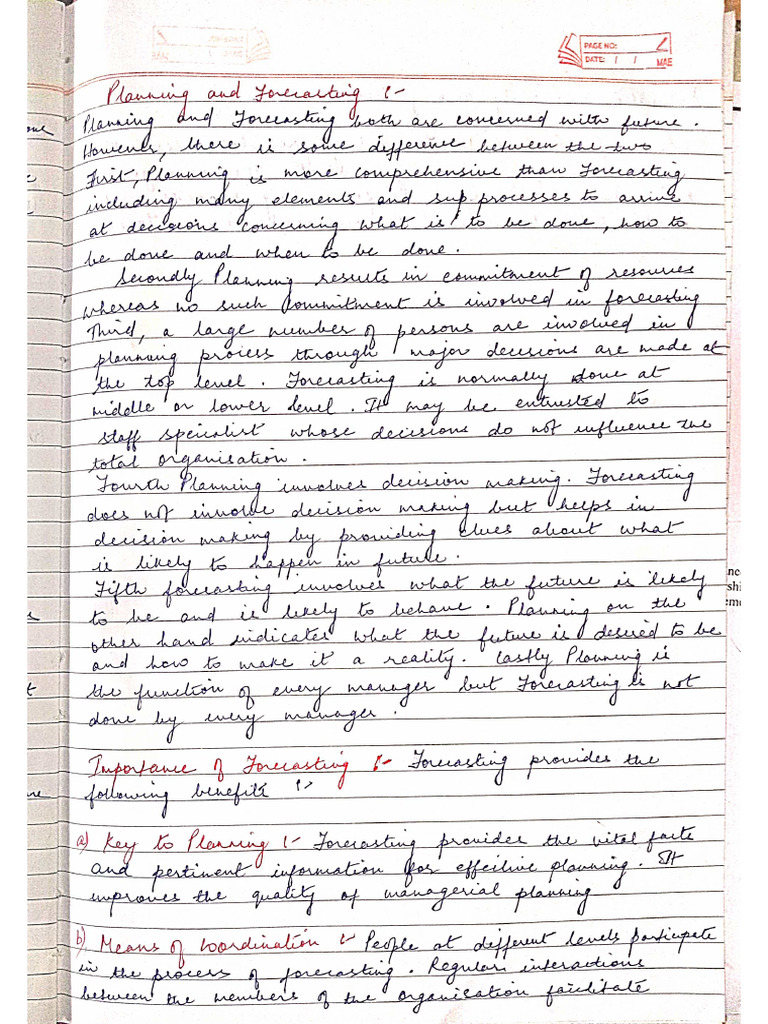 PAGE NO:
DATE: / /
MAE
Planning and Forecasting :-
Planning and Forecasting both are concerned with future.
However, there is some difference between the two
First, Planning is more comprehensive than Forecasting
including many elements and sup processes to arrive
at decisions concerning what is to be done, how to
be done and when to be done.
Secondly Planning results in commitment of resources
whereas no such commitment is involved in forecasting
Third, a large number of persons are involved in
planning process through major decisions are made at
the top level. Forecasting is normally done at
middle or lower level. It may be entrusted to
staff specialist whose decisions do not influence the
total organisation.
Fourth Planning involves decision making. Forecasting
does not involve decision making but helps in
decision making by providing clues about what
is likely to happen in future.
Fifth forecasting involves what the future is likely
to be and is likely to behave. Planning on the
other hand indicates what the future is desired to be
and how to make it a reality. Lastly Planning is
the function of every manager but Forecasting is not
done by every manager.
Importance of Forecasting :- Forecasting provides the
following benefits :-
a) Key to Planning :- Forecasting provides the vital facts
and pertinent information for effective planning. It
improves the quality of managerial planning
b) Means of Coordination :- People at different levels participate
in the process of forecasting. Regular interactions
between the members of the organisation facilitate